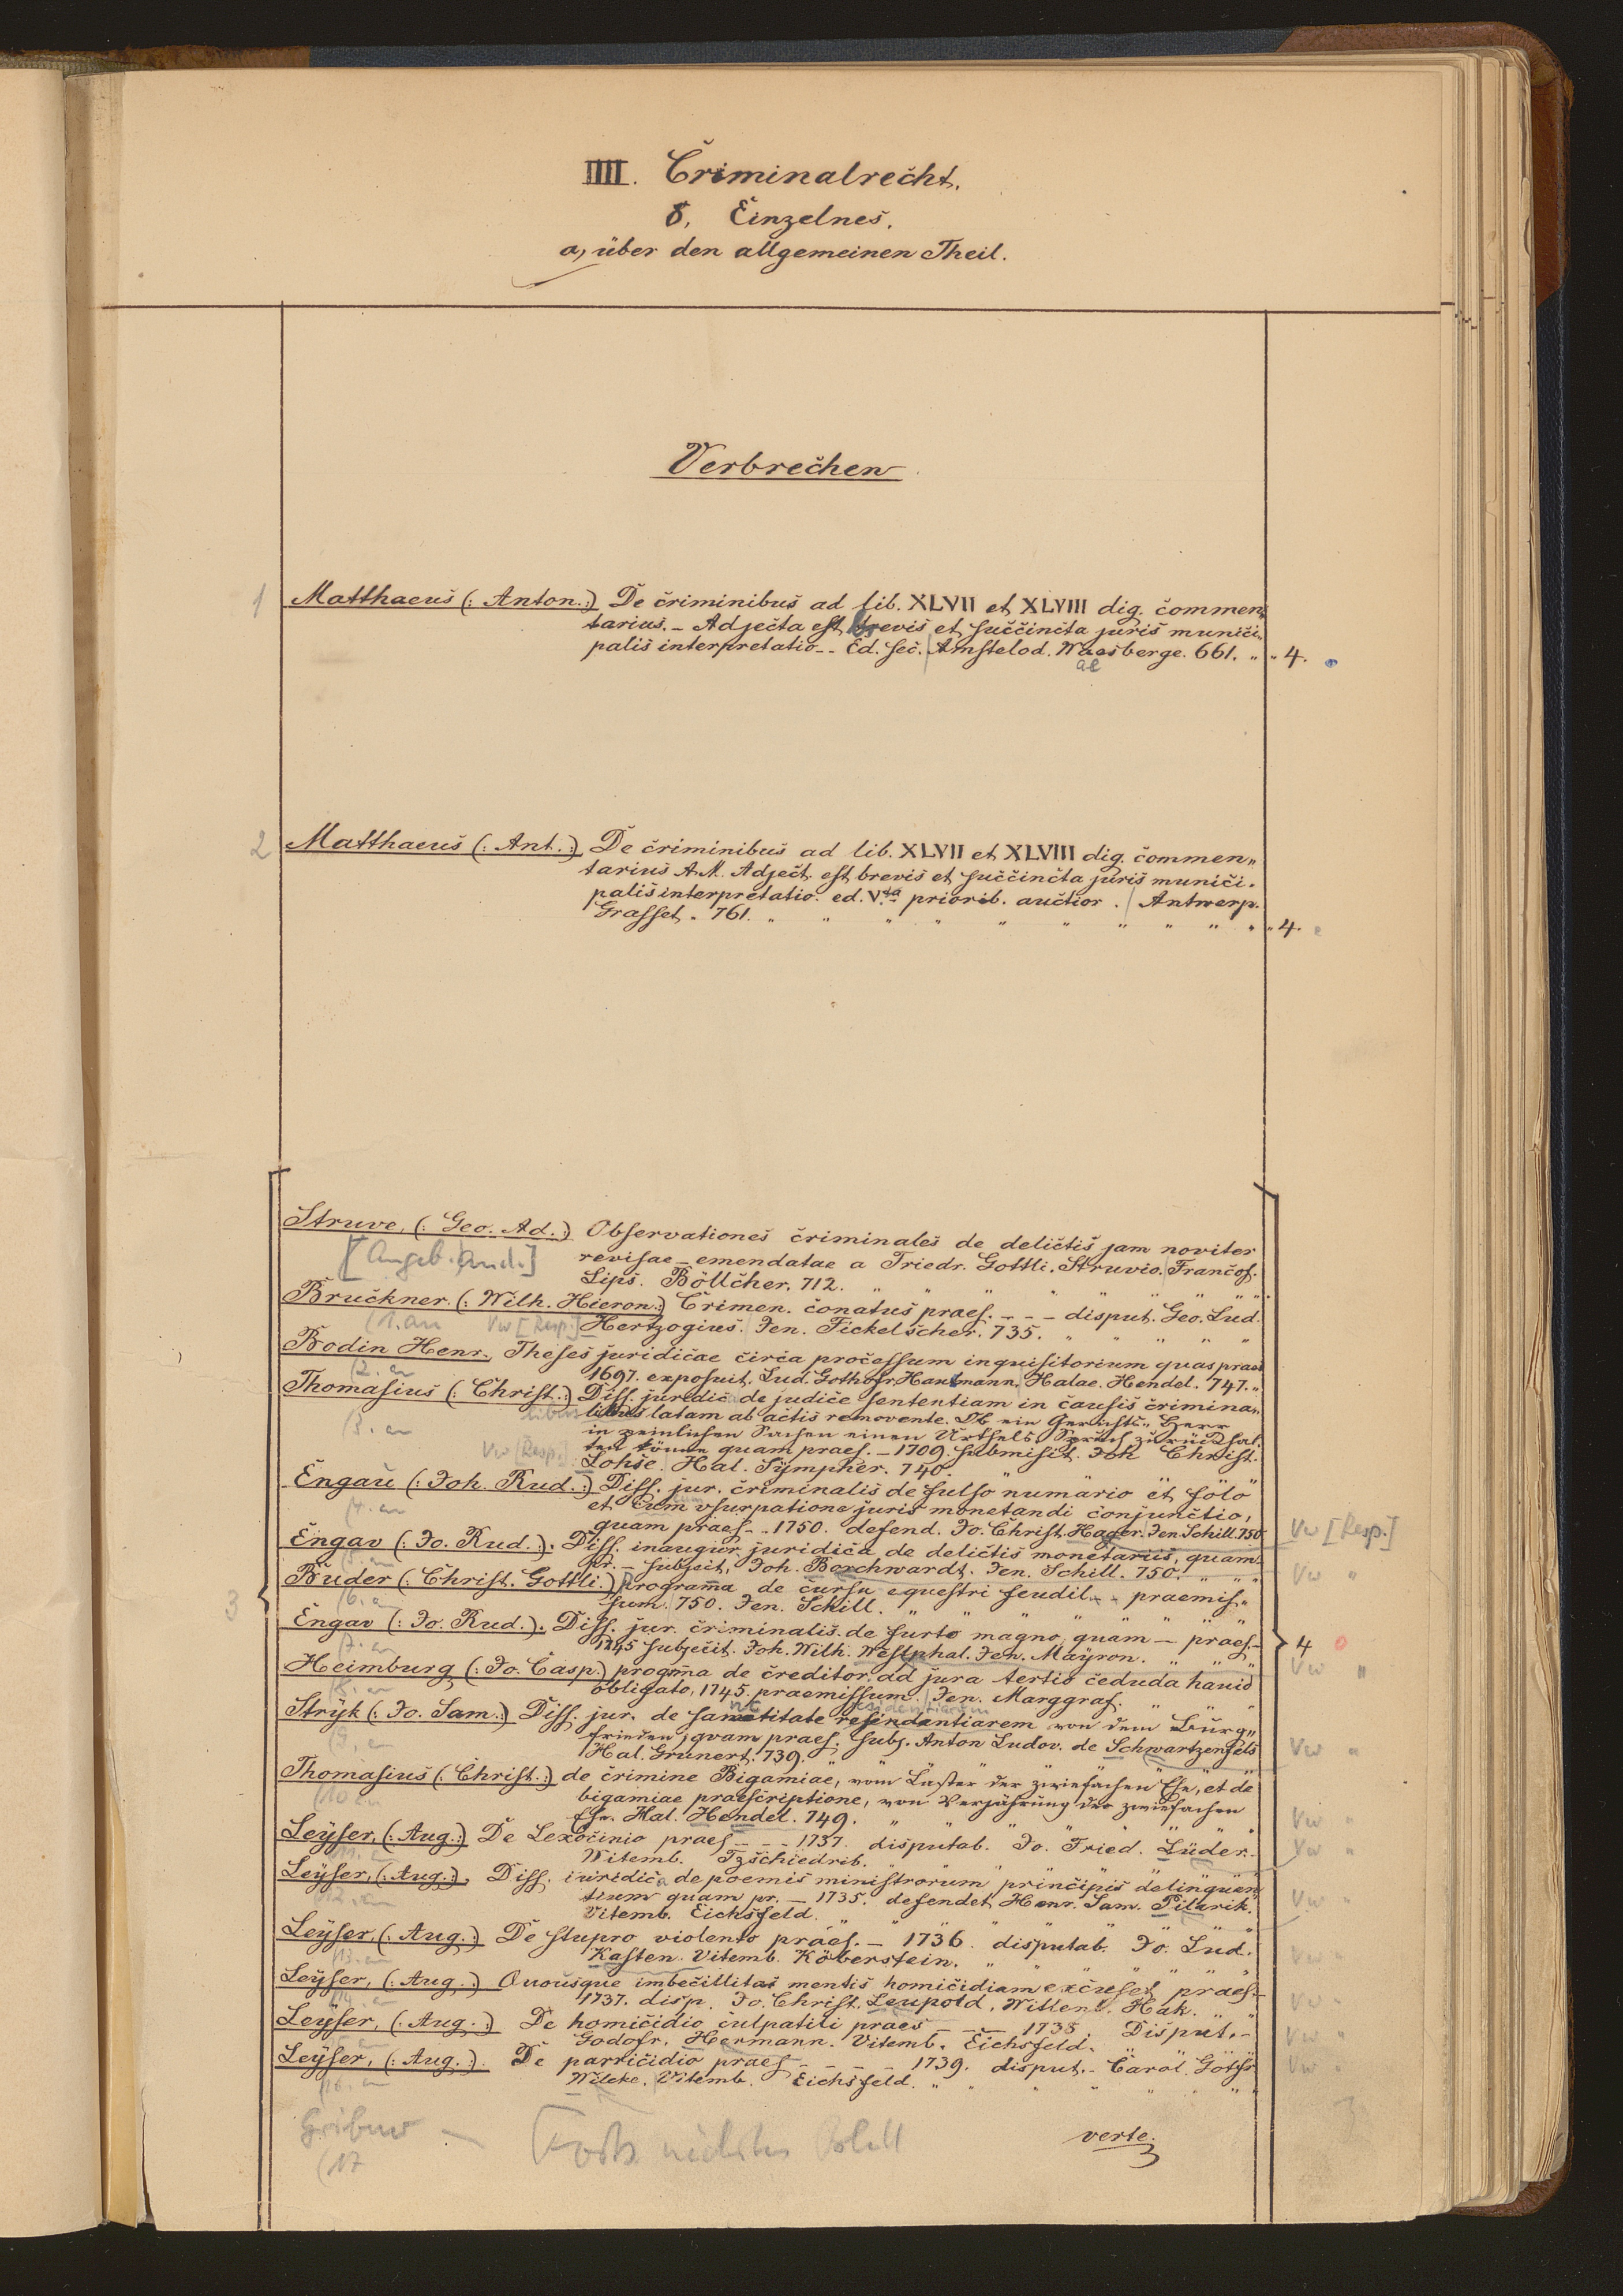 IIII. Criminalrecht.
8. Einzelnes.
a, über den allgemeinen Theil.
Verbrechen
1 Matthaeus (: Anton. :) De criminibus ad lib. XLVII et XLVIII dig. commen„
tarius. – Adjecta est brevis et succincta juris munici„
palis interpretatio – – Ed. sec. Amstelod. Waesberge. 661. „ „ 4.
ae
2 Matthaeus (: Ant. :) De criminibus ad lib. XLVII et XLVIII dig. commen„
tarius A.M. Adject. est brevis et succincta juris munici.
palis interpretatio. ed. V.ta priorib. auctior. Antwerp.
Grasset. 761. „ „ „ „ „ „ „ „ „ „ 4.
Struve, (: Geo. Ad. :) Observationes criminales de delictis jam noviter
[Angeb. and.] revisae – emendatae a Friedr. Gottli. Struvio. Francof.
Lips. Böllcher. 712. „ „ „ „ „ „ „
Bruckner. (: Wilh. Hieron :) Crimen. conatus praes. – – – disput. Geo. Lud.
(1. an Vw [Resp.] Hertzogius. Jen. Fickelscher. 735. „ „ „ „ „
Bodin Henr., Theses juridicae circa processum inquisitorium quas praes
(2. an 1697. exposuit. Lud. Gothofr. Hartmann. Halae. Hendel. 747. „
Thomasius (: Christ. :) Diss. juridic de judice sententiam in causis crimina„
libus latam ab actis removente. Ob ein Gerichts„ Herr
(3. an in peinlichen Sachen einen Urthels„ Spruch zurück hal„
Vw [Resp.] ten könne quam praes. – 1709. submisit. Joh Christ.
Lohse. Hal. Sympher. 740. „
Engau (: Joh. Rud. :) Diss. jur. criminalis de falso numario et solo
(4. an et cum vsurpatione juris monetandi conjunctio,
quam praes – – 1750. defend. Jo. Christ. Hager. Jen. Schill. 750. Vw [Resp.]
Engav (: Jo. Rud. :). Diss. inaugur. juridica de delictis monetariis, quam
pr. – subjecit, Joh. Borchwardt. Jen. Schill. 750. „ „ „ Vw „
Buder (: Christ. Gottli. :) programa de cursu equestri feudil – praemis„
3 (6. an sum. 750. Jen. Schill. „ „ „ „ „ „ „
Engav (: Jo. Rud. :). Diss. jur. criminalis. de furto magno quam – praes. –
(7. an 1745 subjecit. Joh. Wilh. Westphal. Jen. Mayron. „ „ „ 4 0 Vw „
Heimburg (: Jo. Casp. :) progrma de creditor. ad jura tertio ceduda haud
(8. an obligato, 1745. praemissum. Jen. Marggraf. „ „ „
Stryk (: Jo. Sam. :) Diss. jur. de sanctitate residentiarem von dem Burg„
(9. an frieden, qvam praes. subj. Anton Ludov. de Schwartzenfels Vw „
Hal. Grunert. 739. „ „ „ „ „ „ „
Thomasius (: Christ. :) de crimine Bigamiae, vom Laster der zwiefachen Ehe, et de
(10 an bigamiae praescriptione, von Verjährung der zwiefachen
Ehe. Hal. Hendel. 749. „ „ „ „ „ „ „ Vw „
Leyser, (: Aug. :) De Lenocinio praes – – – 1737. disputab. Jo. Fried. Lüder. Vw „
Witemb. Tzschiedrib.
Leyser, (: Aug. :), Diss. iuridica de poemis ministrorum principis delinquen„
(12. an tium quam pr. – 1735. defendet Henr. Sam. Pitlarik. Vw „
Vitemb. Eichsfeld. „ „ „ „ „ „ „
Leyser, (: Aug. :) De stupro violento praes. – 1736. disputab. Jo. Lud.
(13. an Kasten. Vitemb. Köberstein. „ „ „ „ „ „ Vw „
Leyser, (: Aug. :) Quousque imbecillitas mentis homicidiam excuset praes. –
(14. an 1737. disp. Jo. Christ. Leupold. Wittenb. Hak. „ „ Vw „
Leyser, (: Aug. :) De homicidio culpatili praes – – – 1735. Disput. –
Godofr. Hermann. Vitemb. Eichsfeld. „ „ „ „ Vw „
Leyser, (: Aug. :). De parricidio praes – – – – 1739. disput. – Carol. Gottfr
(16. an Wilcke. Vitemb. Eichsfeld. „ „ „ „ „ „ Vw „
Gribner — Forts. nächstes Blatt verte.
(17